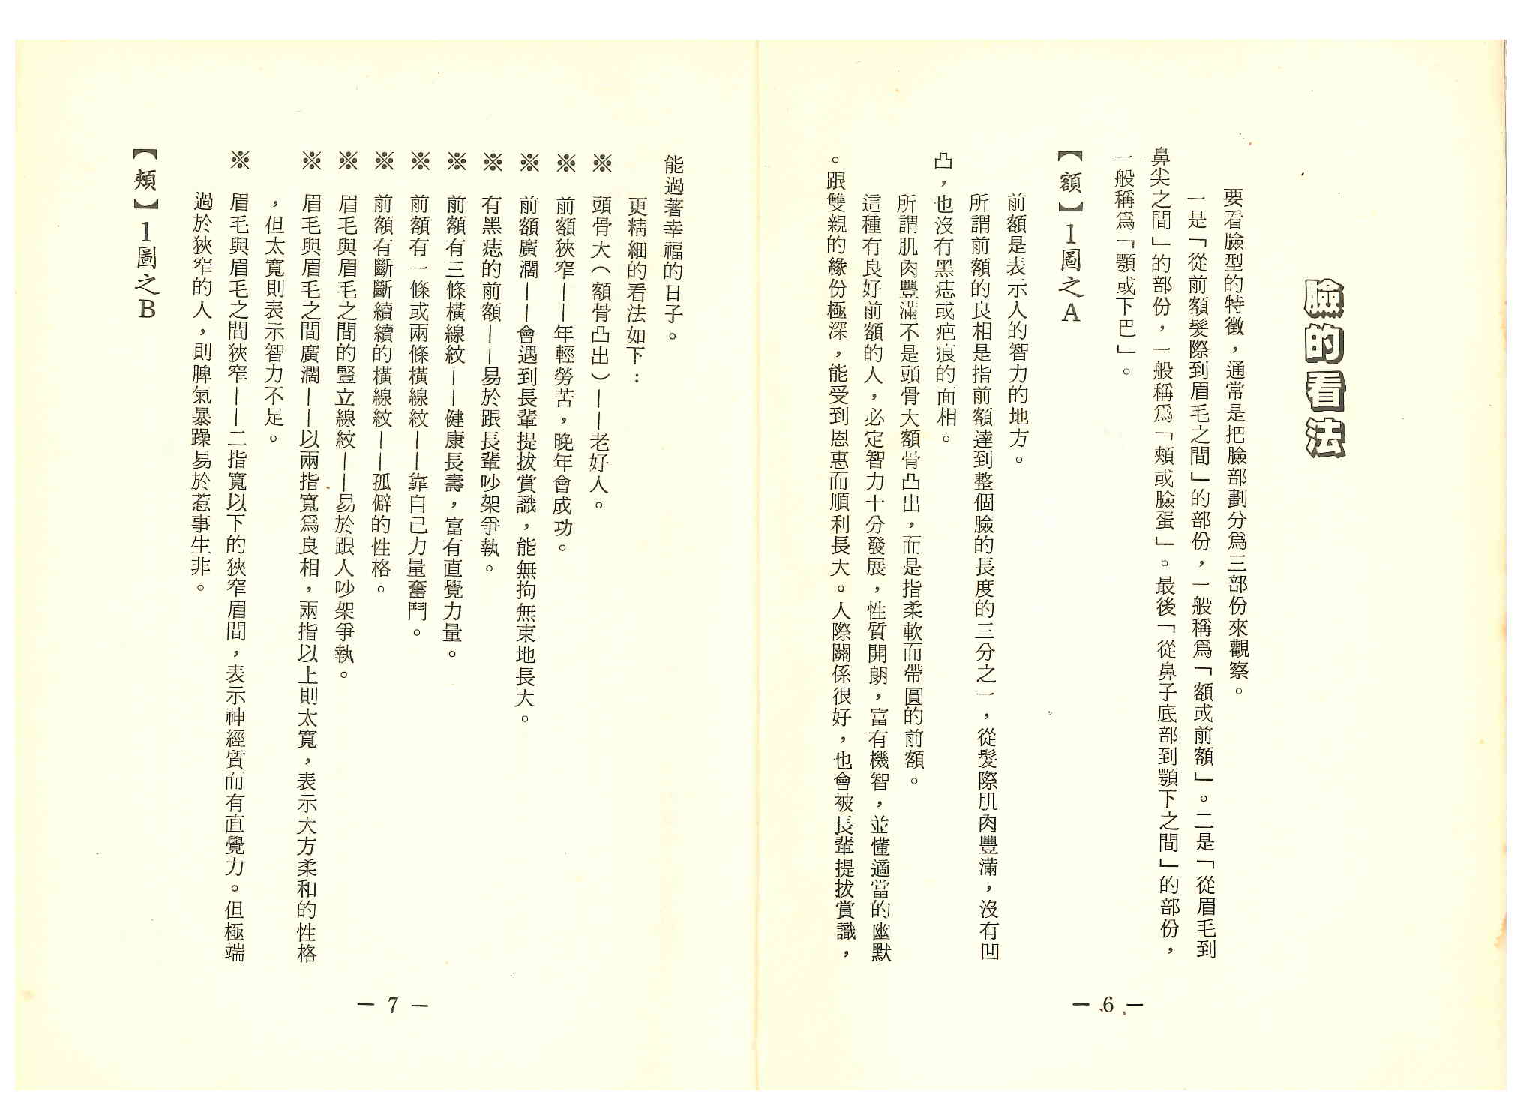 臉的看法
要看臉型的特徵，通常是把臉部劃分爲三部份來觀察。
一是「從前額髮際到眉毛之間」的部份，一般稱爲「額或前額」。二是「從眉毛到
鼻尖之間」的部份，一般稱爲「頰或臉蛋」。最後「從鼻子底部到顎下之間」的部份，
一般稱爲「顎或下巴」。
【額】1圖之A
前額是表示人的智力的地方。
所謂前額的良相是指前額達到整個臉的長度的三分之一，從髮際肌肉豐滿，沒有凹
凸，也沒有黑痣或疤痕的面相。
所謂肌肉豐滿不是頭骨大額骨凸出，而是指柔軟而帶圓的前額。
這種有良好前額的人，必定智力十分發展，性質開朗，富有機智，並懂適當的幽默
。跟雙親的緣份極深，能受到恩惠而順利長大。人際關係很好，也會被長輩提拔賞識，
— 6 —
能過著幸福的日子。
更精細的看法如下：
※ 頭骨大（額骨凸出）——老好人。
※ 前額狹窄——年輕勞苦，晚年會成功。
※ 前額廣濶——會遇到長輩提拔賞識，能無拘無束地長大。
※ 有黑痣的前額——易於跟長輩吵架爭執。
※ 前額有三條橫線紋——健康長壽，富有直覺力量。
※ 前額有一條或兩條橫線紋——靠自己力量奮鬥。
※ 前額有斷斷續續的橫線紋——孤僻的性格。
※ 眉毛與眉毛之間的豎立線紋——易於跟人吵架爭執。
※ 眉毛與眉毛之間廣濶——以兩指寬爲良相，兩指以上則太寬，表示大方柔和的性格
，但太寬則表示智力不足。
※ 眉毛與眉毛之間狹窄——二指寬以下的狹窄眉間，表示神經質而有直覺力。但極端
過於狹窄的人，則脾氣暴躁易於惹事生非。
【頰】1圖之B
— 7 —